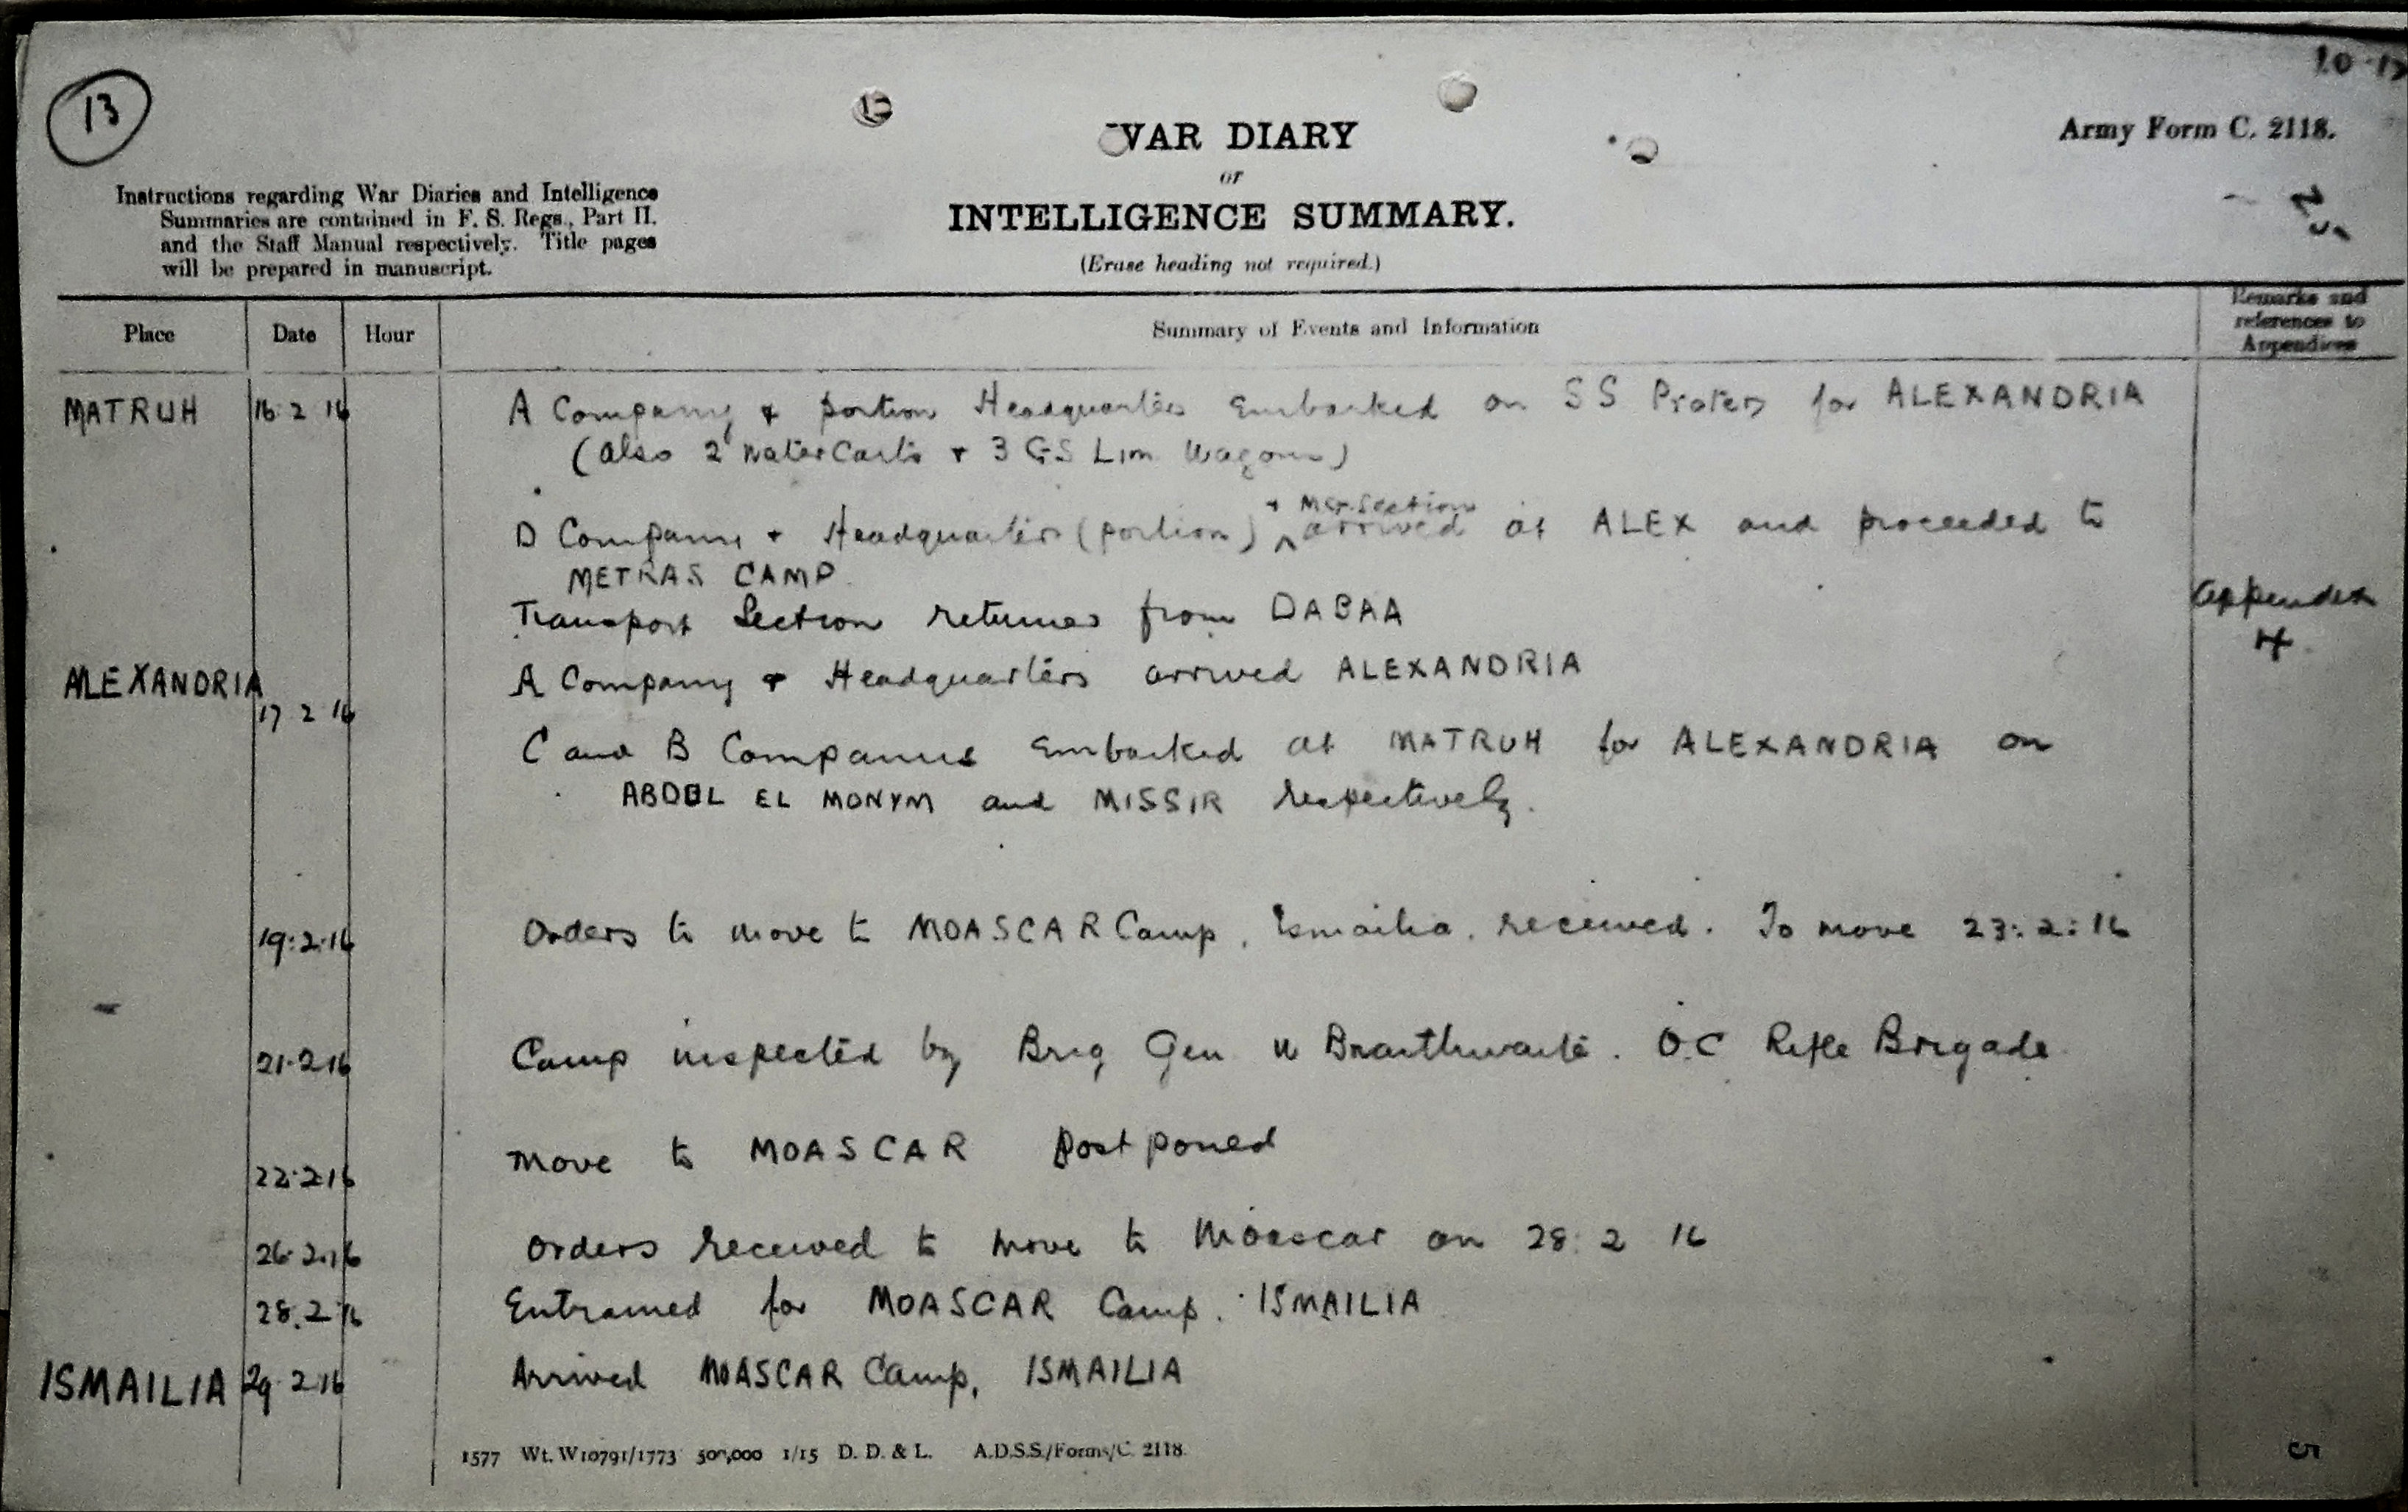 13
Army Form C. 2118.
WAR DIARY
or
INTELLIGENCE SUMMARY.
(Erase heading not required.)
Instructions regarding War Diaries and Intelligence
Summaries are contained in F. S. Regs., Part II.
and the Staff Manual respectively. Title pages
will be prepared in manuscript.
Place Date Hour Summary of Events and Information Remarks and
references to
Appendices
MATRUH 16 2 16 A Company & portion Headquarters Embarked on SS Proteus for ALEXANDRIA
(also 2 water Carts & 3 GS Lim Wagons)
+ MG Section
D Company + Headquarters (portion) arrived at ALEX and proceeded to
METRAS CAMP
Transport Section returned from DABAA
Appendix
4
ALEXANDRIA A Company & Headquarters arrived ALEXANDRIA
17 2 16
C and B Companies Embarked at MATRUH for ALEXANDRIA on
ABDUL EL MONYM and MISSIR respectively.
19:2:16 Orders to move to MOASCAR Camp, Ismailia, received. To move 23:2:16
21.2 16 Camp inspected by Brig Gen W Braithwaite. O.C Rifle Brigade
22.2 16 Move to MOASCAR postponed
26.2.16 Orders received to move to Moascar on 28:2 16
28.2 16 Entrained for MOASCAR Camp. ISMAILIA
ISMAILIA 29.2 16 Arrived MOASCAR Camp, ISMAILIA
1577 Wt. W10791/1773 500,000 1/15 D. D. & L. A.D.S.S./Forms/C. 2118.
5